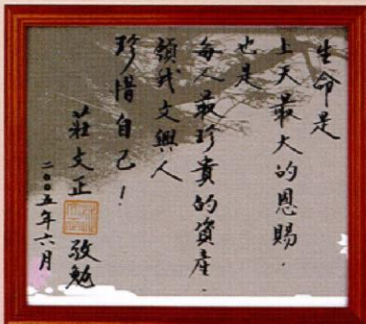 生命是
上天最大的恩賜．
也是
每人最珍貴的資產．
願我文興人
珍惜自己！
莊文正 敬勉
二００五年六月